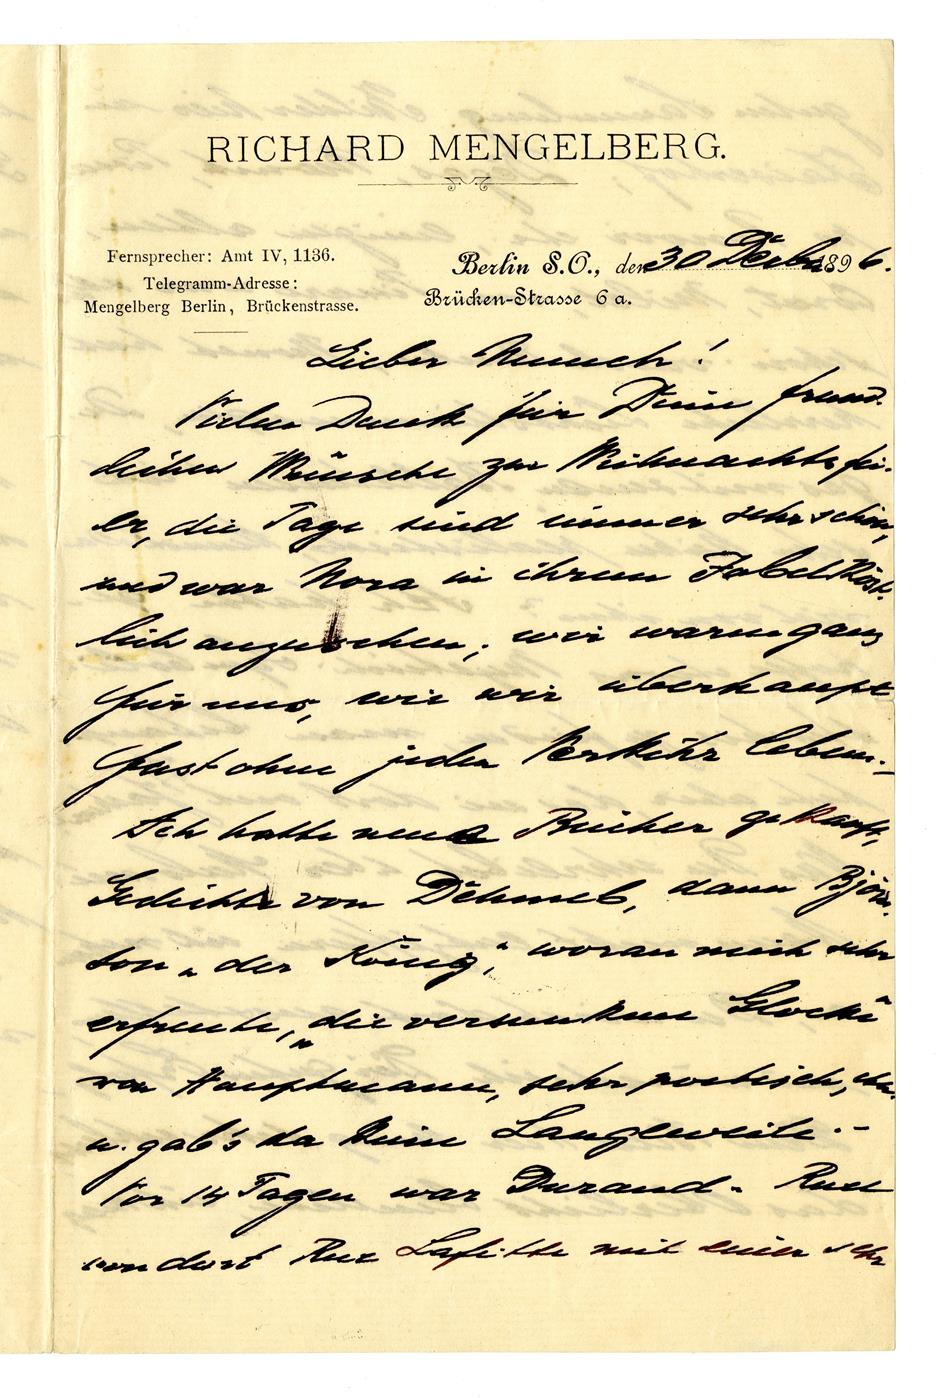 RICHARD MENGELBERG.
Fernsprecher: Amt IV, 1136.
Telegramm-Adresse:
Mengelberg Berlin, Brückenstrasse.
Berlin S.O., den 30 Decbr 1896.
Brücken-Strasse 6 a.
Lieber Munch!
Vielen Dank für Deine freund-
lichen Wünsche zur Weihnachtsfei-
er, die Tage sind immer sehr schön,
und war Nora in ihrem Jubel köst-
lich anzusehen; wir waren ganz
für uns, wie wir überhaupt
fast ohne jeden Verkehr leben.-
Ich hatte neue Bücher gekauft,
Gedichte von Dehmel, dann Björn-
son „der König“, woran mich sehr
erfreute, „die versunkene Glocke“
von Hauptmann, sehr poetisch,
u. gab's da keine Langeweile.-
Vor 14 Tagen war Durand-Ruel
von dort Rue Lafitte mit einer sehr